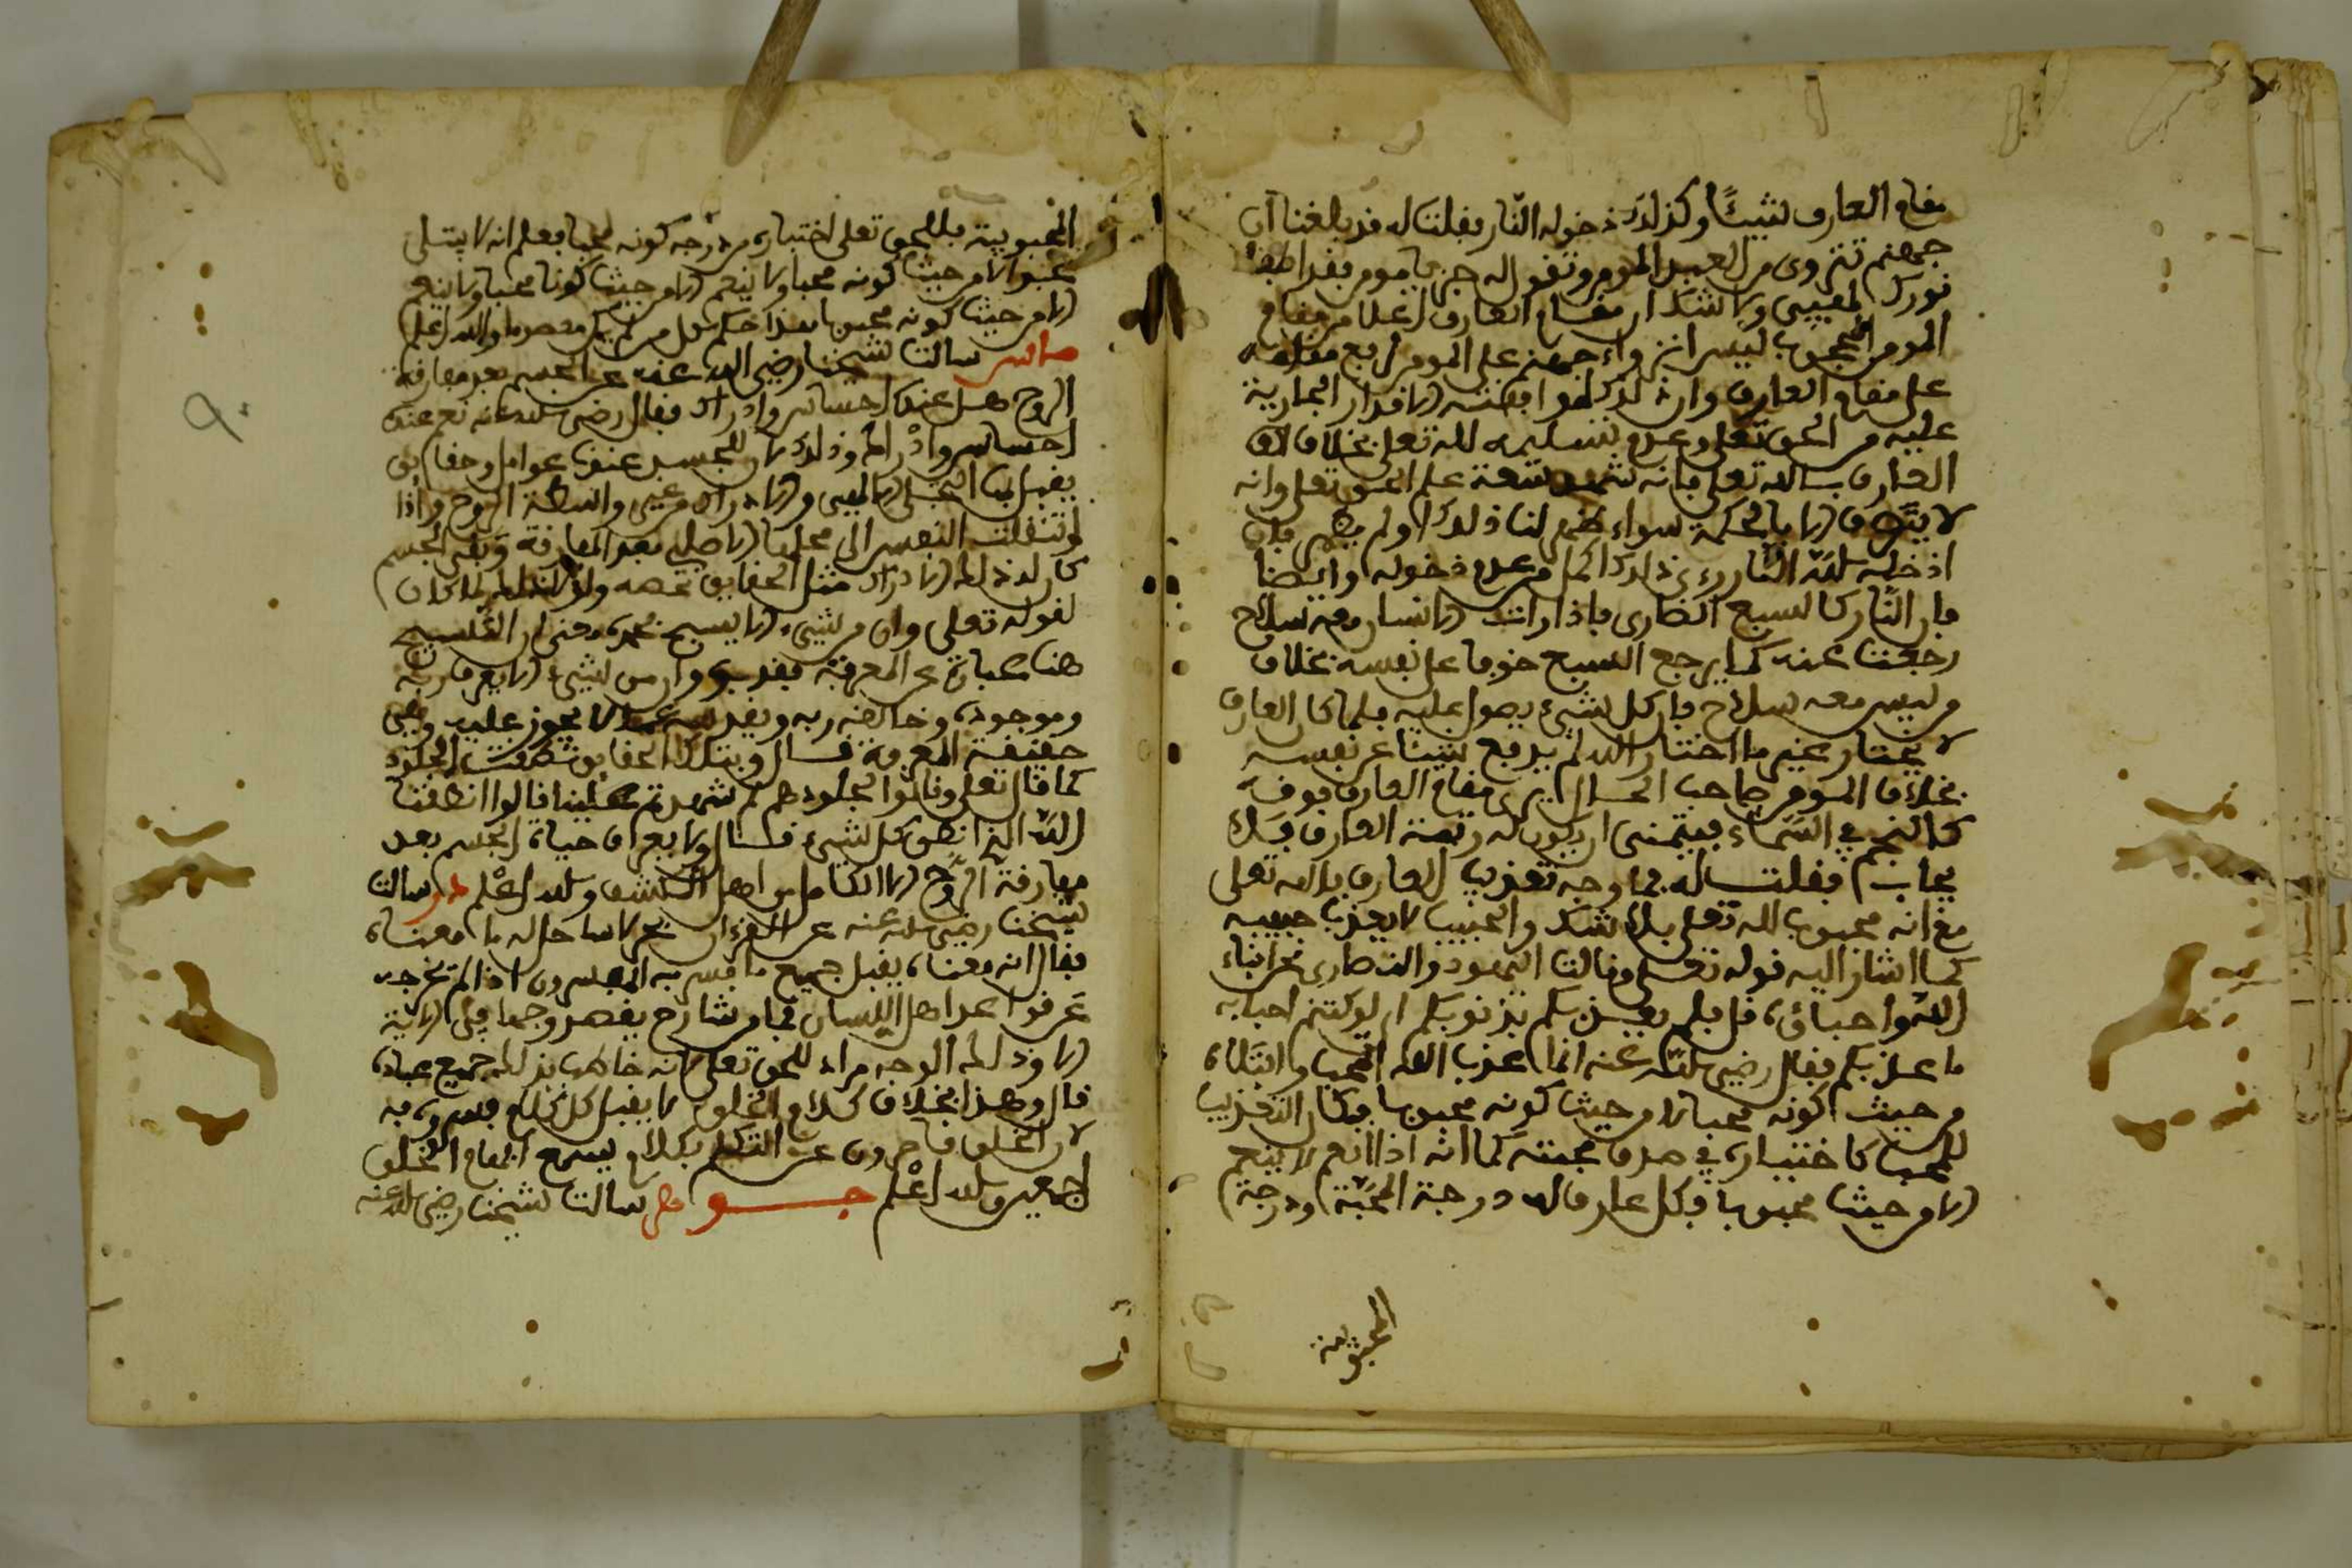 مقام العارف شيئًا وكذلك دخوله النّار فقلت له قد بلغنا ان
جهنم تنزوى من العبد المومن وتقول له جز يا مومن فقد اطفا
نورك لهيبي ولا شك ان مقام العارف اعلا من مقام
المومن المحجوب ليس انزواء جهنم على المومن لرفع مقامه
على مقام العارف وان ذلك لعدم موافقته الاقدار الجارية
عليه من الحق تعلى وعدم تسليمه لله تعلى بخلاف
العارف بالله تعلى فانه شديد ثقة على الحق تعلى وانه
لا يتصرف الا بالحكمة سواء ظهر لنا ذلك او لم يظهر فان
ادخله الله النار رءى ذلك اكمل من عدم دخوله وايضا
فان النّار كالسبع الضارى فاذا رات الانسان معه سلاح
رجعت عنه كما يرجع السبع خوفا على نفسه بخلاف
من ليس معه سلاح فان كل شيء يصول عليه فلما كان العارف
لا يختار غير ما اختار الله لم يدفع شيئا عن نفسه
بخلاف المومن صاحب الحال يرى مقام العارف فوقه
كالنجم في السّماء فيتمنى ان يكون له رتبة العارف فلا
يجاب فقلت له فما وجه تعذيب العارف بالله تعلى
مع انه محبوب لله تعلى بلا شك والحبيب لا يعذب حبيبه
كما اشار اليه قوله تعلى وقالت اليهود والنصارى نحن ابناء
الله واحباؤه قل فلم يعذبكم بذنوبكم اى لو كنتم احبابه
ما عذبكم فقال رضي الله عنه انما عذب الله المحب وابتلاه
من حيث كونه محبا لا من حيث كونه محبوبا فكان التعذيب
للمحب كالاختبار في صدق محبته كما انه اذا انعم لا ينعم
الا من حيث محبوبا فكل عارف له درجة المحبّة ودرجة
المحبوبية
المحبوبية فللحق تعلى اختباره من درجة كونه محبا فعلم انه لا يبتلى
محبوا الا من حيث كونه محبا ولا ينعم الا من حيث كونه محبوبا
الا من حيث كونه محبوبا هذا حكم كل من لم يكن معصوما والله اعلم
ماس سالت شيخنا رضي الله عنه عن الجسم بعد مفارقة
الروح هل عنده احساس وادراك فقال رضي الله عنه نعم عنده
احساس وادراك وذلك لان للجسد عندنا عوامل وحقايق
يقبل بها التجلي الالهى والادراك من غير واسطة الروح واذا
انتقلت النفس الى محلها الاصلي بعد المفارقة وبقى الجسم
كان لذلك الادراك مثل الحقايق تخصه ولولا ذلك لما كان
لقوله تعلى وان من شيء الا يسبح بحمده معنى لان التسبيح
هنا عبارة عن المعرفة فقد سبق وان من شيء الا يعرف ربه
وموجوده وخالقه ربه ويقدسه عما لا يجوز عليه وهى
حقيقة المعرفة قال وبتلك الحقايق نطقت الجلود
كما قال تعلى وقالوا لجلودهم لم شهدتم علينا قالوا انطقنا
الله الذي انطق كل شيء قال ولا يعرف حياة الجسم بعد
مفارقة الروح الا الكامل من اهل الكشف والله اعلم در سالت
شيخنا رضي الله عنه عن القرءان بحر لا ساحل له ما معناه
فقال انه معناه يقبل جميع ما فسر به المفسرون اذا لم يخرجه
عرفوا عن اهل اللسان فما من شارح يقصد وجها في الاية
الا وذلك الوجه مراد للحق تعلى لانه خاطب بذلك جميع عباده
قال وهذا بخلاف كلام الخلق لا يقبل كل كلام فسروه به
لان الخلق قاصرون عن التكلم بكلام يسمع افهام الخلق
اجمعين والله اعلم جو هر سالت شيخنا رضي الله عنه